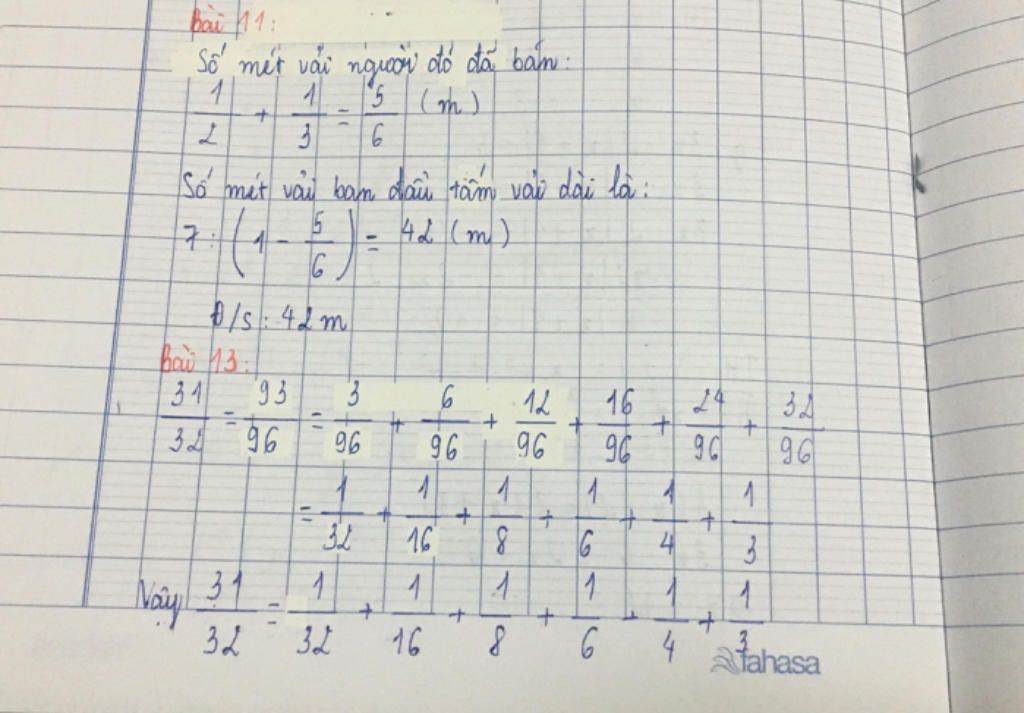 Bài 11:
Số mét vải người đó đã bán:
1/2 + 1/3 = 5/6 (m)
Số mét vải ban đầu tấm vải dài là:
7 : (1 - 5/6) = 42 (m)
Đ/s: 42 m
Bài 13:
31/32 = 93/96 = 3/96 + 6/96 + 12/96 + 16/96 + 24/96 + 32/96
= 1/32 + 1/16 + 1/8 + 1/6 + 1/4 + 1/3
Vậy 31/32 = 1/32 + 1/16 + 1/8 + 1/6 + 1/4 + 1/3
fahasa